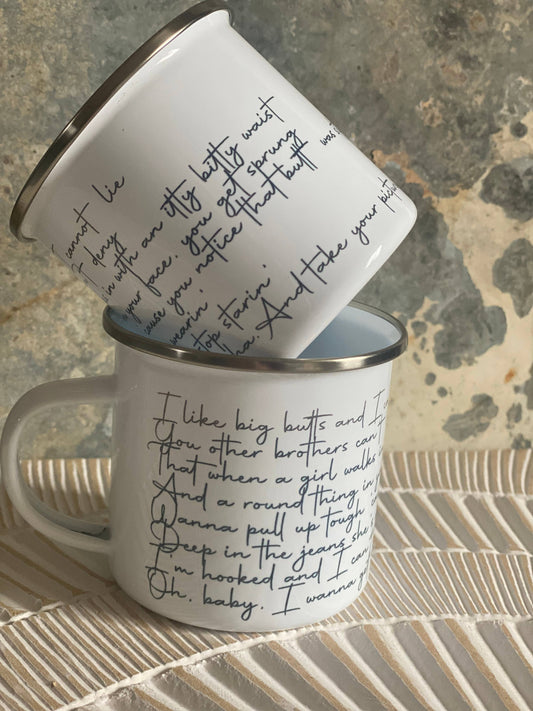 cannot lie
deny
in with an itty bitty waist
your face, you get sprung
'cause you notice that butt was
wearin'
stop starin'
And take your pictu
I like big butts and I c
You other brothers can't
That when a girl walks
And a round thing in
Wanna pull up tough
Deep in the jeans she's
I'm hooked and I can
Oh, baby. I wanna g